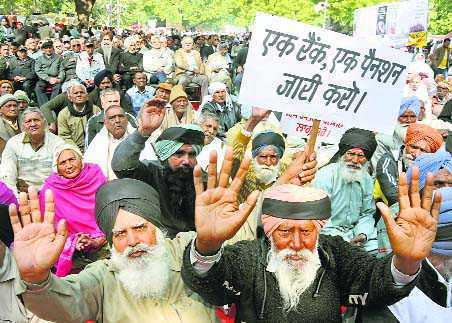 एक रैंक, एक पैनशन
जारी करो।